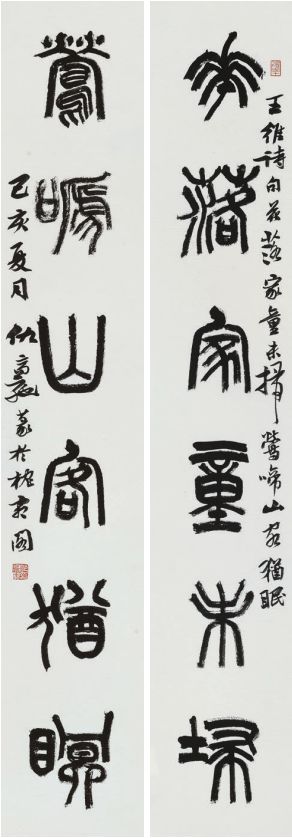 華落家童未埽
王維詩句花落家童未掃鶯啼山客猶眠
鶯嗁山客猶瞑
己亥夏月仇高馳篆於